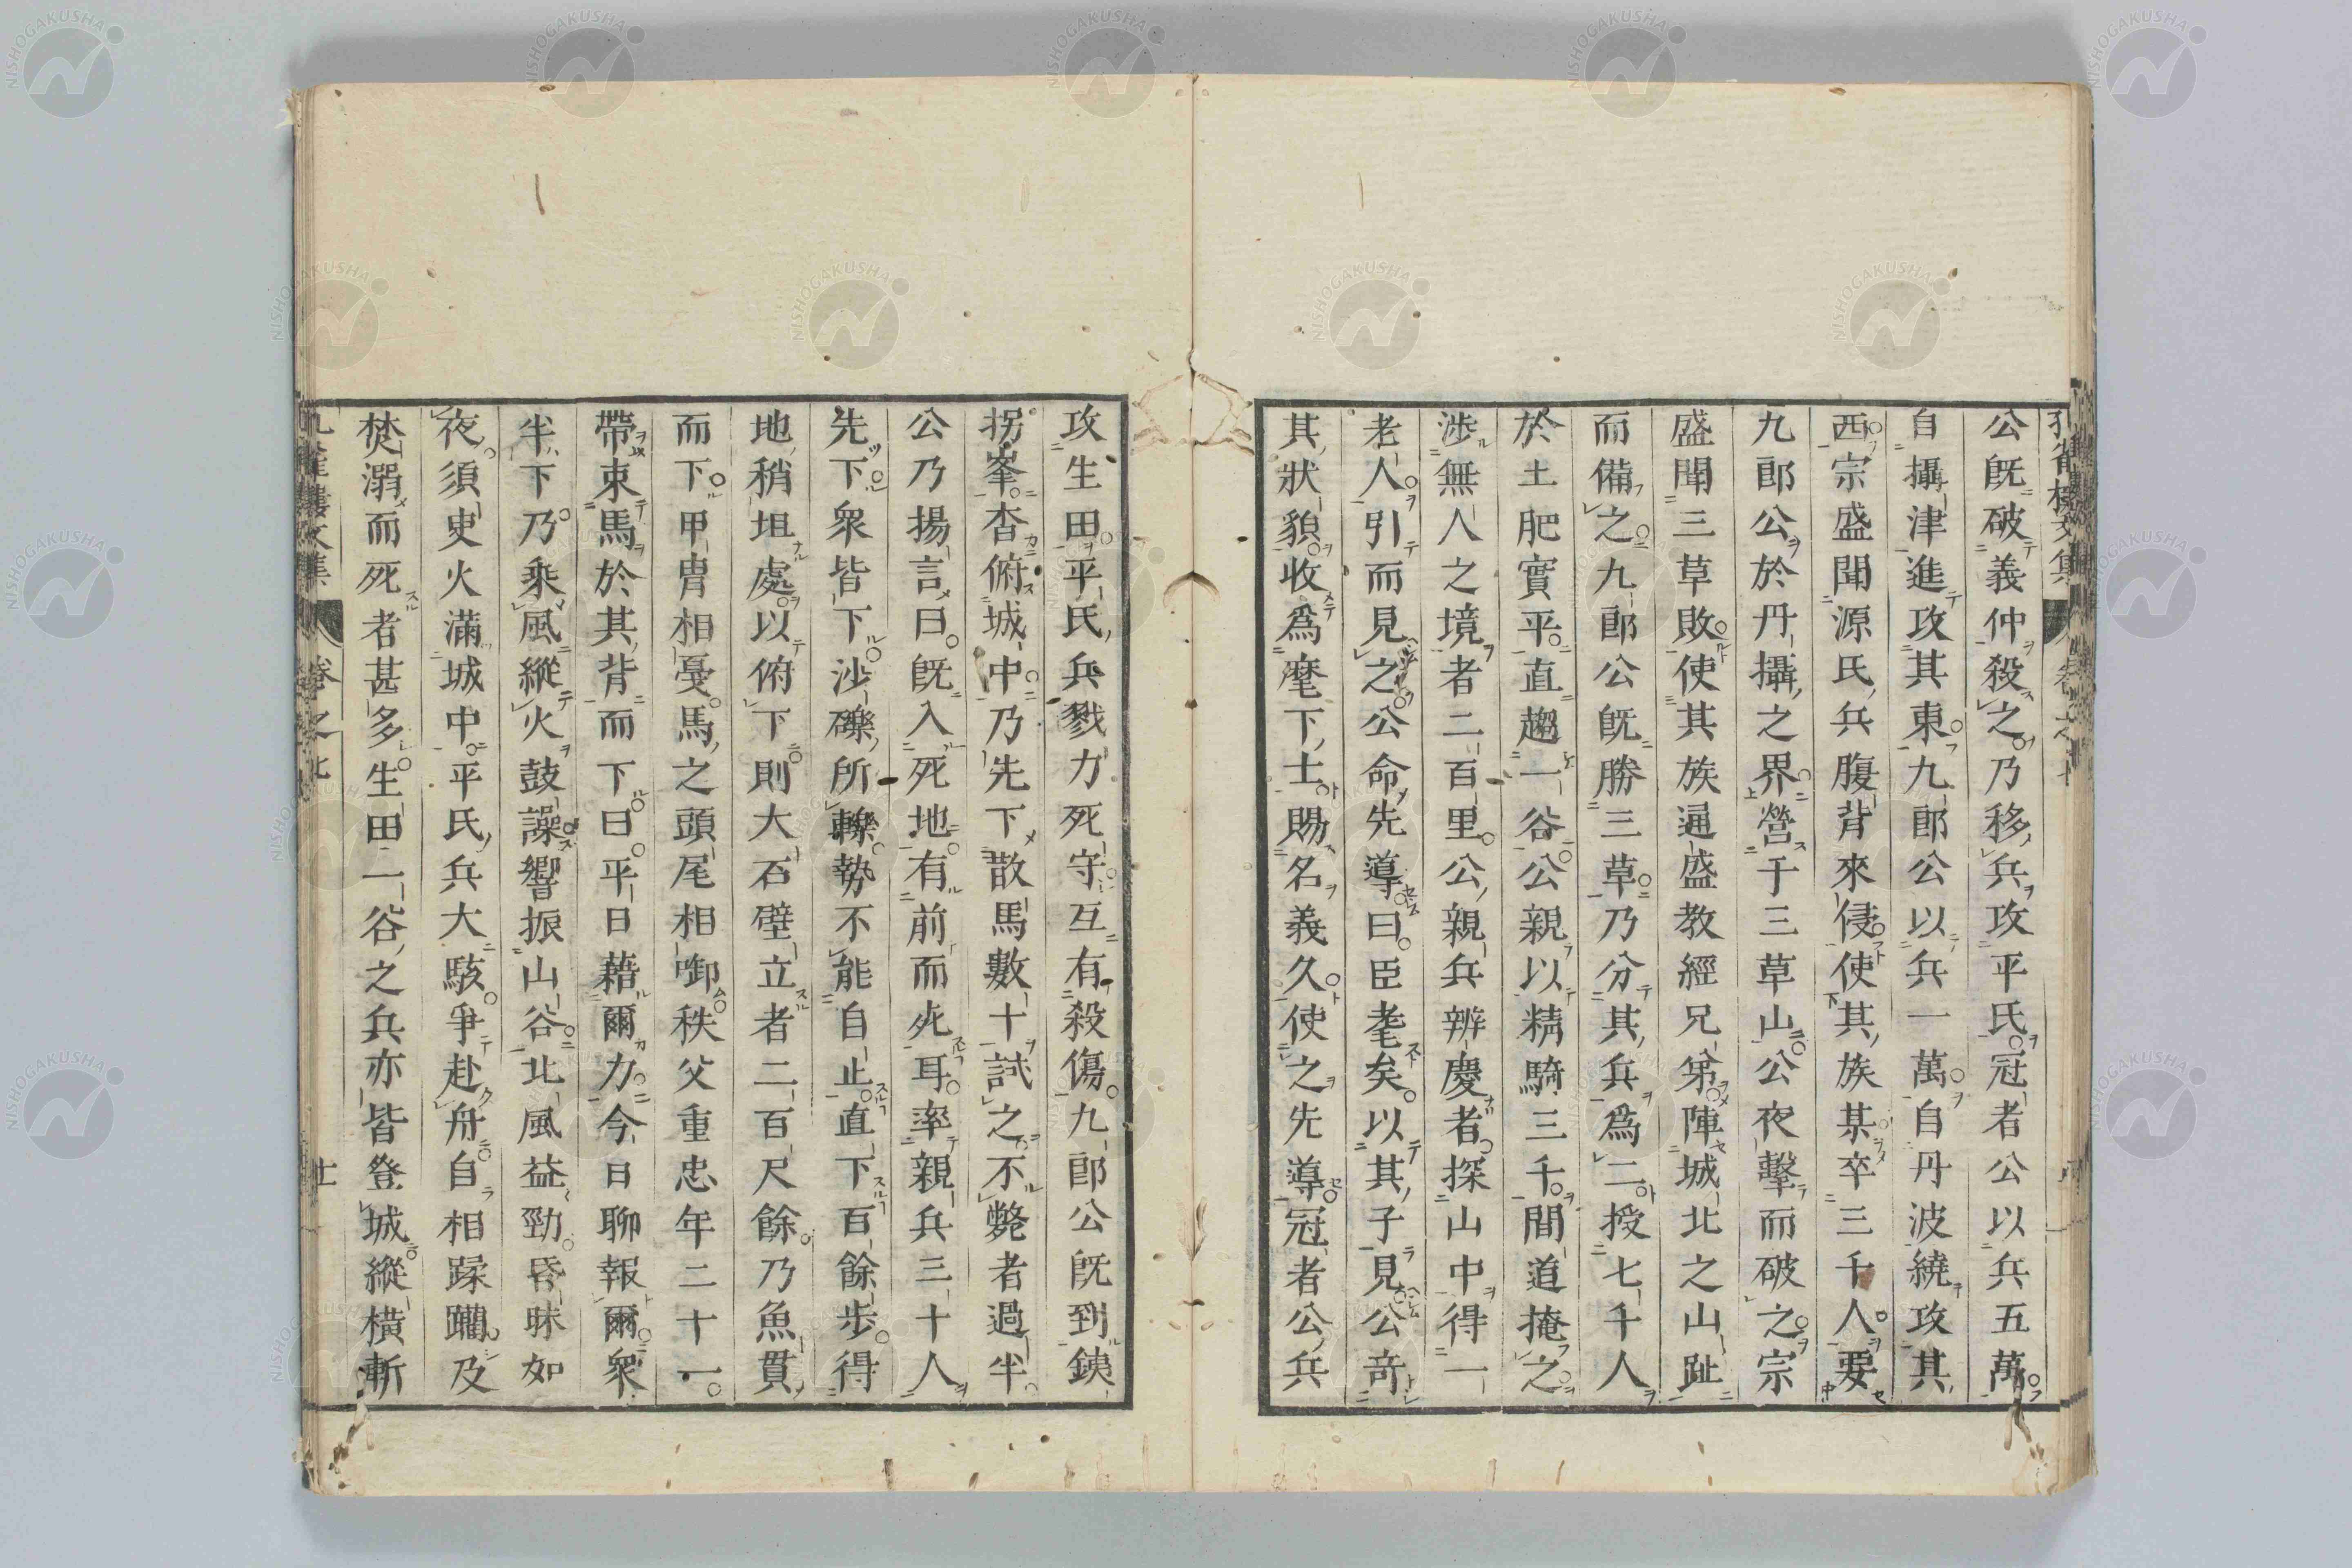 公既破義仲殺之乃移兵攻平氏冠者公以兵五萬
自攝津進攻其東九郎公以兵一萬自丹波繞攻其
西宗盛聞源氏兵腹背來侵使其族某卒三千人要
九郎公於丹攝之界營于三草山公夜擊而破之宗
盛聞三草敗使其族通盛教經兄弟陣城北之山趾
而備之九郎公既勝三草乃分其兵為二授七千人
於土肥實平直趨一谷公親以精騎三千間道掩之
涉無人之境者二百里公親兵辨慶者探山中得一
老人引而見之公命先導曰臣耄矣以其子見公奇
其狀貌收為麾下士賜名義久使之先導冠者公兵
攻生田平氏兵戮力死守互有殺傷九郎公既到鐵
拐峯杳俯城中乃先下散馬數十試之不斃者過半
公乃揚言曰既入死地有前而死耳率親兵三十人
先下衆皆下沙礫所轢勢不能自止直下百餘步得
地稍坦處以俯下則大石壁立者二百尺餘乃魚貫
而下甲冑相戞馬之頭尾相啣秩父重忠年二十一
帶束馬於其背而下曰平日藉爾力今日聊報爾衆
半下乃乘風縱火鼓譟響振山谷北風益勁昏昧如
夜須臾火滿城中平氏兵大駭爭赴舟自相蹂躪及
焚溺而死者甚多生田一谷之兵亦皆登城縱橫斬
孔雀樓文集 卷之七 十一